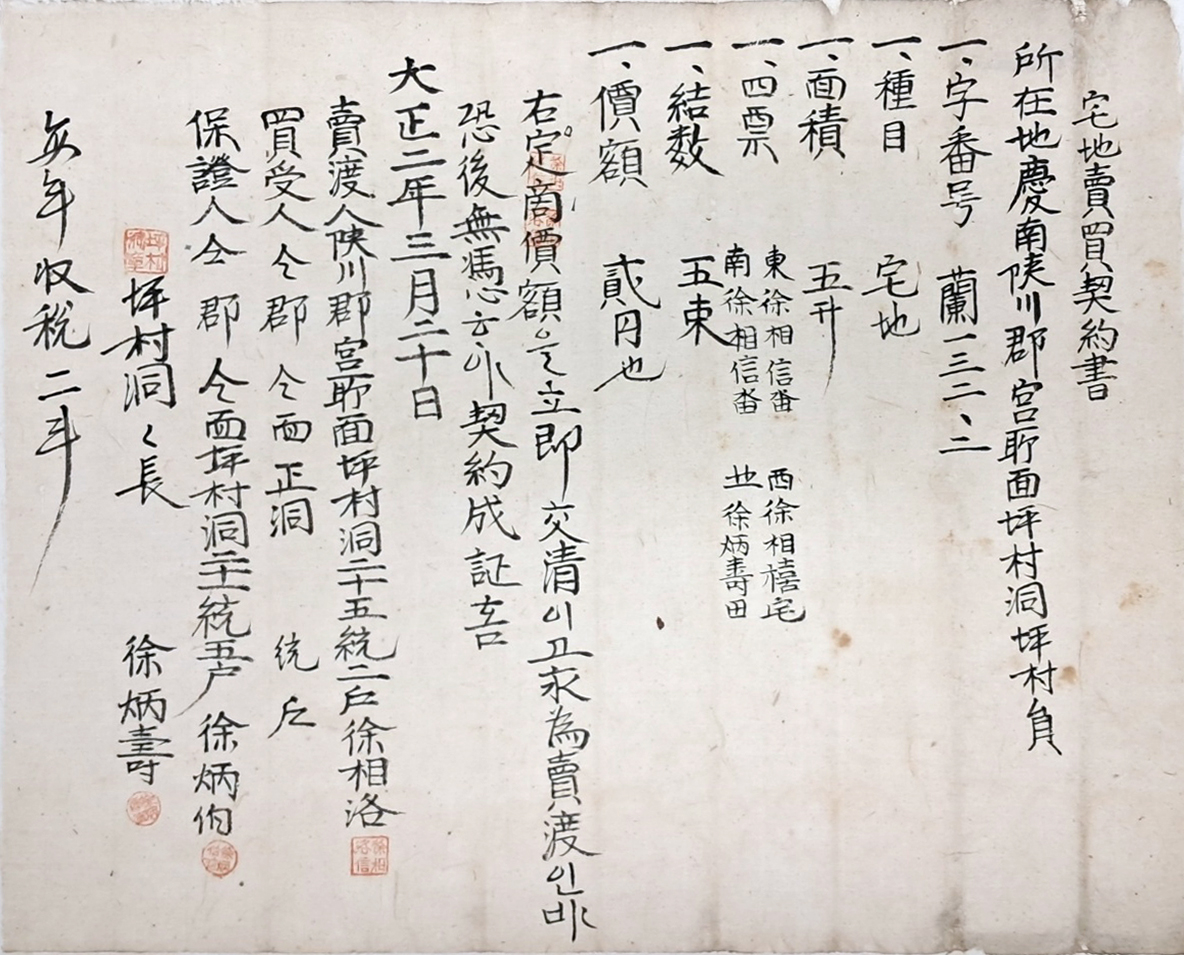 宅地賣買契約書
所在地慶南陜川郡宮所面坪村洞坪村員
一、字番号 蘭一三二、二
一、種目 宅地
一、面積 五升
一、四票 東徐相信畓 西徐相禧宅
南徐相信畓 北徐炳壽田
一、結数 五束
一、價額 貳円也
右定商價額을立即交清이고永為賣渡인바
恐後無憑云야契約成証吉
大正二年三月二十日
賣渡人陜川郡宮所面坪村洞二十五統二戶徐相洛
買受人仝郡仝面正洞 統 戶
保證人仝郡仝面坪村洞統五戶徐炳伯
坪村洞〻長 徐炳壽
每年収税二斗